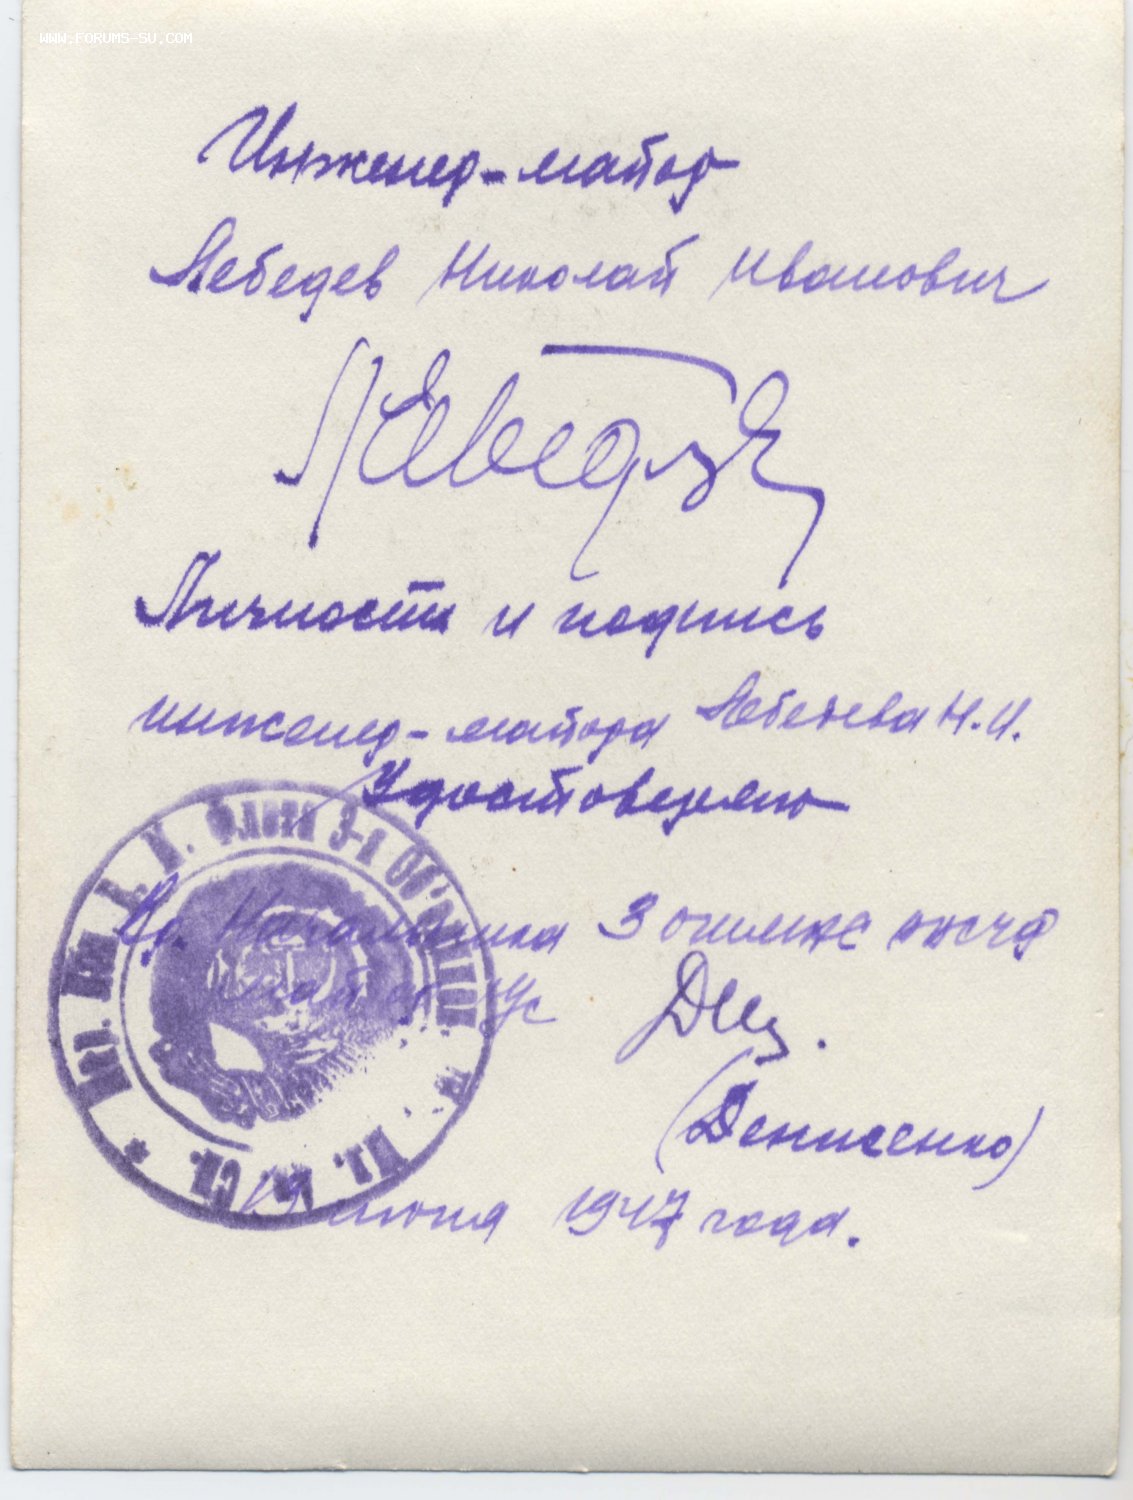 WWW.FORUMS-SU.COM
Инженер-майор
Лебедев Николай Иванович
Личность и подпись
инженер-майора Лебедева Н.И.
Удостоверяю
Вр. Начальника 3
(Денисенко)
19 июня 1947 года.
Флота 3-я